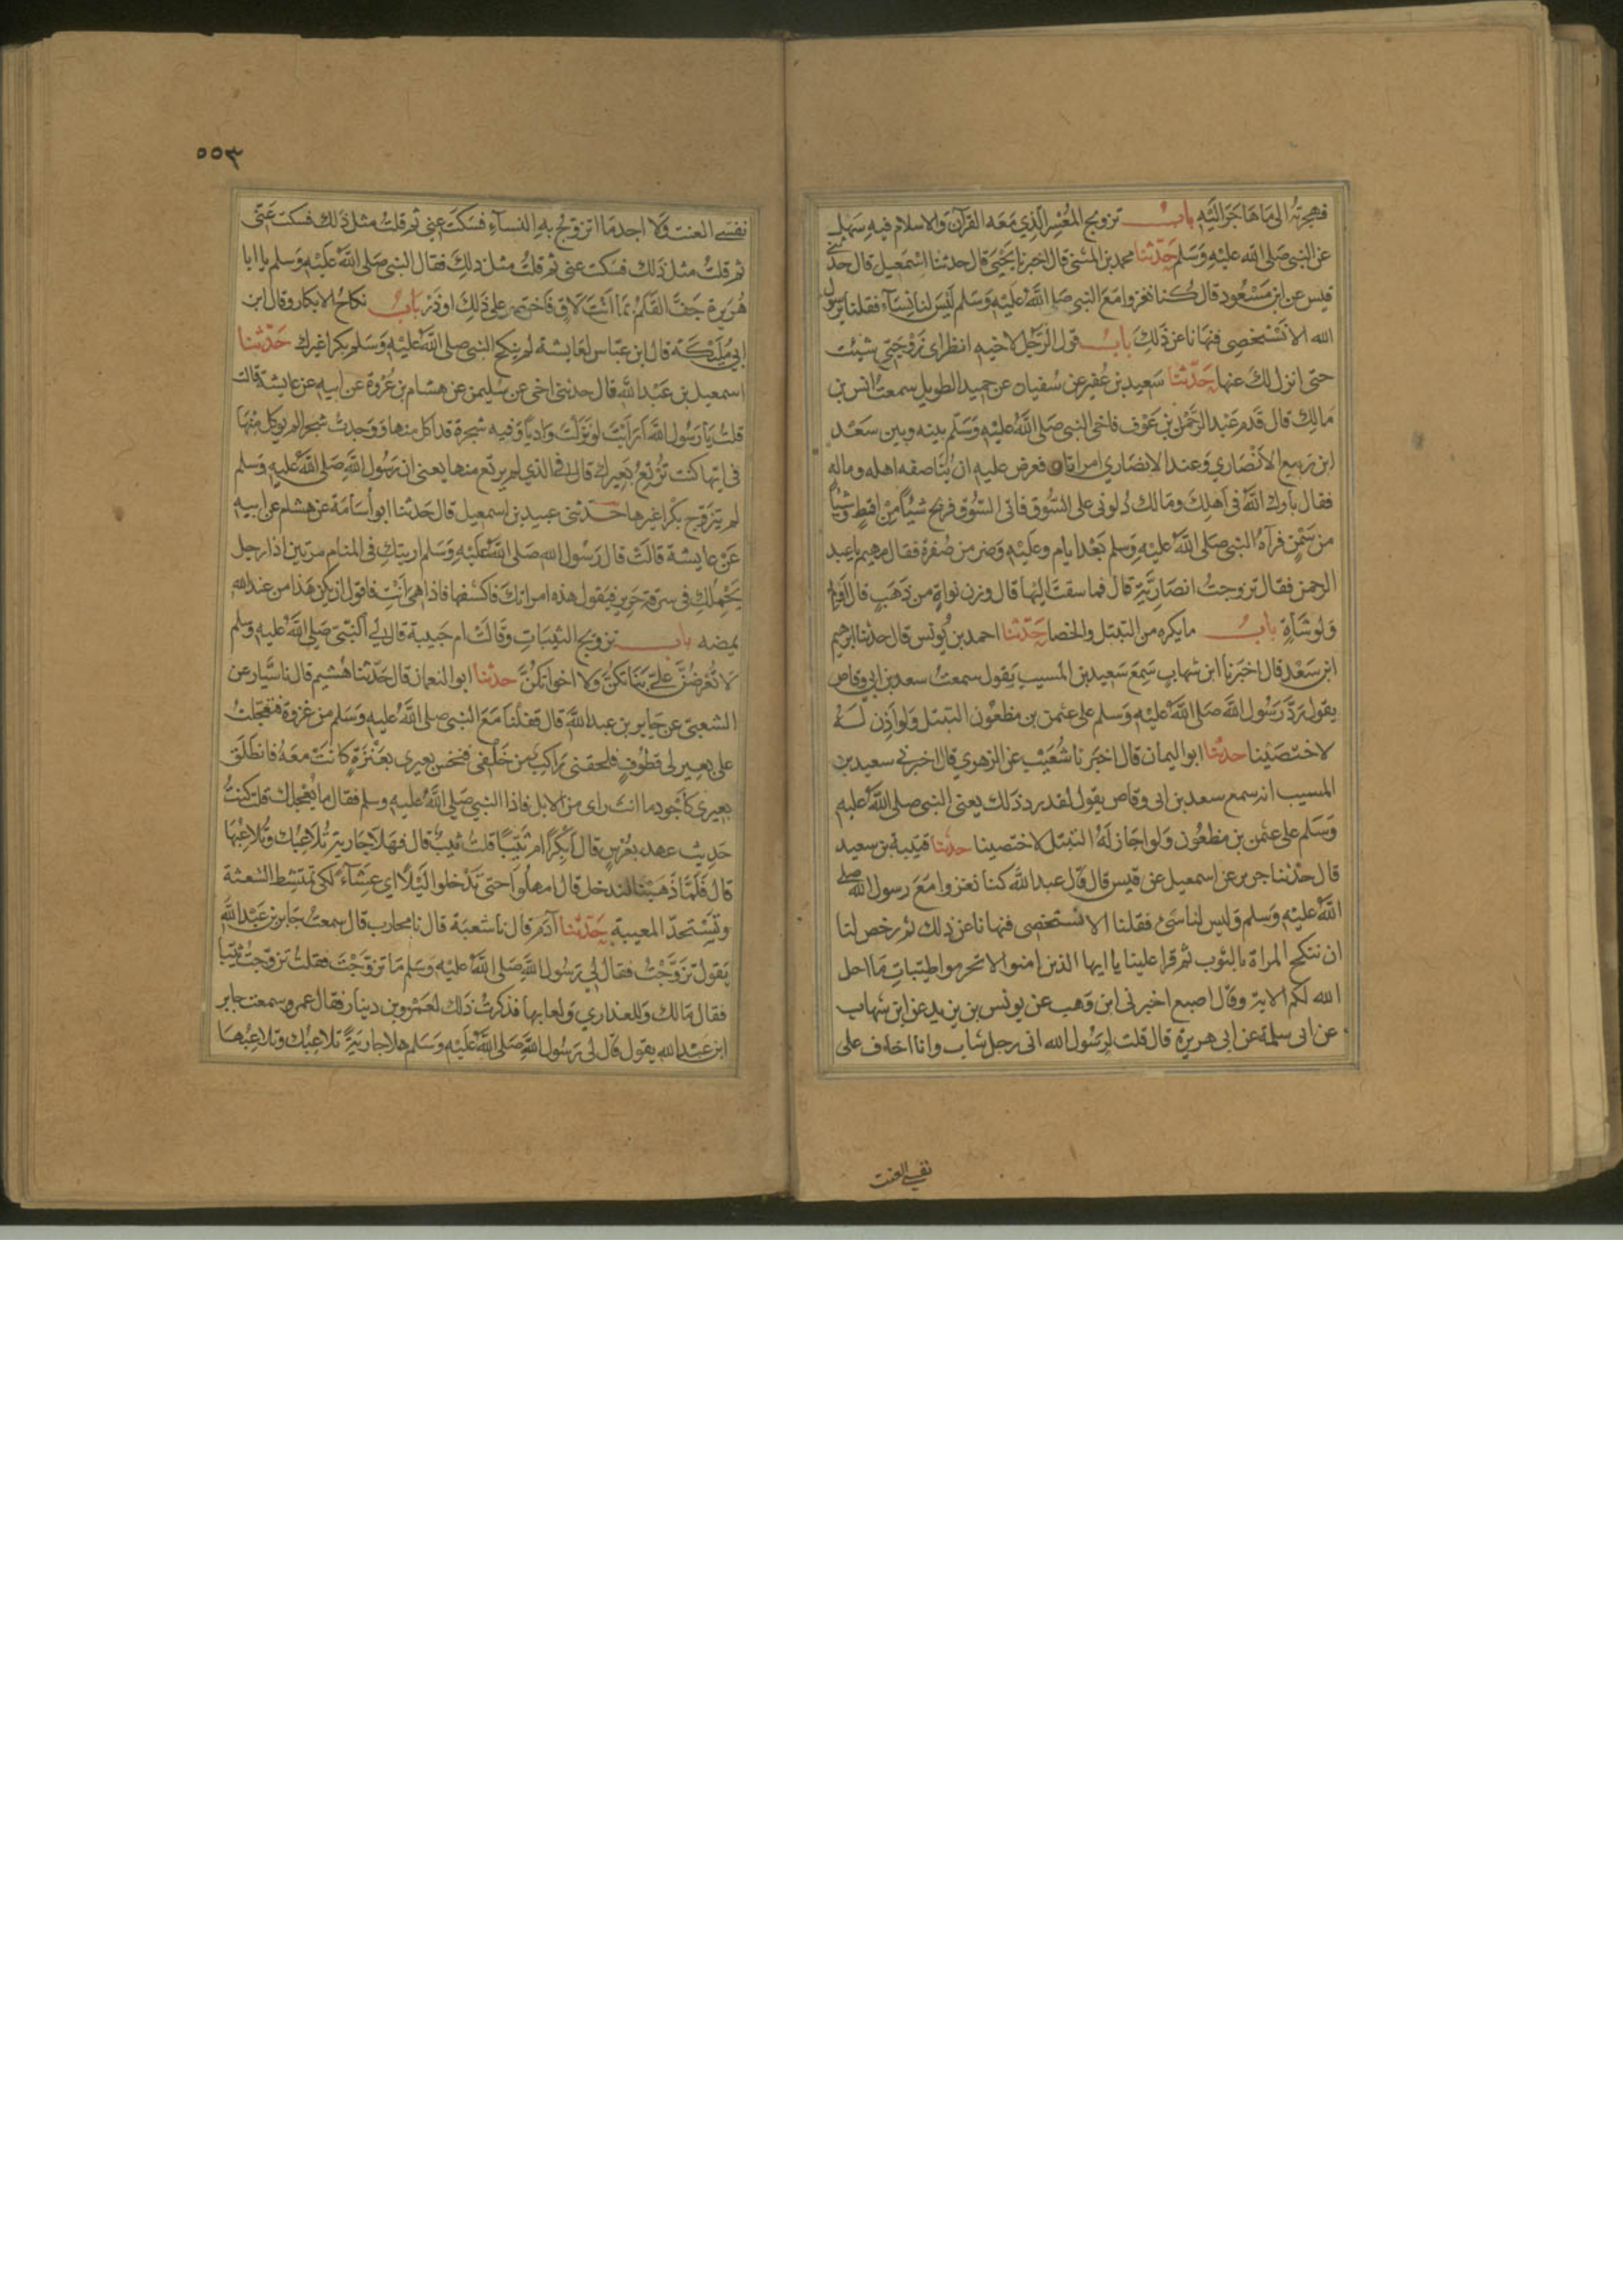 فهجرته الى ما هاجر اليه باب تزويج المعسر الذي معه القرآن والاسلام فيه سهل
عن النبي صلى الله عليه وسلم حدثنا محمد بن المثنى قال اخبرنا يحيى قال حدثنا اسمعيل قال حدثني
قيس عن ابن مسعود قال كنا نغزوا مع النبي صلى الله عليه وسلم ليس لنا نساء فقلنا يرسول
الله الا نستخصى فنهانا عن ذلك باب قول الرجل لاخيه انظر اى زوجتي شئت
حتى انزل لك عنها حدثنا سعيد بن عفير عن سفيان عن حميد الطويل سمعت انس بن
مالك قال قدم عبد الرحمن بن عوف فاخى النبي صلى الله عليه وسلم بينه وبين سعد
ابن ربيع الانصاري وعند الانصاري امراتان فعرض عليه ان يناصفه اهله وماله
فقال بارك الله في اهلك ومالك دلوني على السوق فاتى السوق فربح شيئا من اقط وشيئا
من سمن فرآه النبي صلى الله عليه وسلم بعد ايام وعليه وضر من صفرة فقال مهيم يا عبد
الرحمن فقال تزوجت انصارية قال فما سقت اليها قال وزن نواة من ذهب قال اولم
ولو بشاة باب ما يكره من التبتل والخصا حدثنا احمد بن يونس قال حدثنا ابرهيم
ابن سعد قال اخبرنا ابن شهاب سمع سعيد بن المسيب يقول سمعت سعد بن ابي وقاص
يقول رد رسول الله صلى الله عليه وسلم على عثمن بن مظعون التبتل ولو اذن له
لاختصينا حدثنا ابو اليمان قال اخبرنا شعيب عن الزهري قال اخبرني سعيد بن
المسيب انه سمع سعد بن ابي وقاص يقول لقد رد ذلك يعنى النبي صلى الله عليه
وسلم على عثمن بن مظعون ولو اجاز له التبتل لاختصينا حدثنا قتيبة بن سعيد
قال حدثنا جرير عن اسمعيل عن قيس قال قال عبد الله كنا نغزوا مع رسول الله صلى
الله عليه وسلم وليس لنا شئ فقلنا الا نستخصى فنهانا عن ذلك ثم رخص لنا
ان ننكح المراة بالثوب ثم قرا علينا يا ايها الذين امنوا لا تحرموا طيبات ما احل
الله لكم الاية وقال اصبع اخبرني ابن وهب عن يونس بن يزيد عن ابن شهاب
عن ابي سلمة عن ابي هريرة قال قلت يرسول الله انى رجل شاب وانا اخاف على
نفسي العنت
٥٥٣
نفسى العنت ولا اجد ما اتزوج به النساء فسكت عنى ثم قلت مثل ذلك فسكت عنى
ثم قلت مثل ذلك فسكت عنى ثم قلت مثل ذلك فقال النبي صلى الله عليه وسلم يا ابا
هريرة جف القلم بما انت لاق فاختص على ذلك او ذر باب نكاح الابكار وقال ابن
ابي مليكة قال ابن عباس لعايشة لم ينكح النبي صلى الله عليه وسلم بكرا غيرك حدثنا
اسمعيل بن عبد الله قال حدثني اخي عن سليمن عن هشام بن عروة عن ابيه عن عايشة قالت
قلت يا رسول الله ارايت لو نزلت واديا وفيه شجرة قد اكل منها ووجدت شجرا لم يوكل منها
في ايها كنت ترتع بعيرك قال في الذي لم يرتع منها يعنى ان رسول الله صلى الله عليه وسلم
لم يتزوج بكرا غيرها حدثنى عبيد بن اسمعيل قال حدثنا ابو اسامة عن هشام عن ابيه
عن عايشة قالت قال رسول الله صلى الله عليه وسلم اريتك في المنام مرتين اذا رجل
يحملك في سرقة حرير فيقول هذه امراتك فاكشفها فاذا هي انت فاقول ان يكن هذا من عند الله
يمضه باب تزويج الثيبات وقالت ام حبيبة قال لي النبي صلى الله عليه وسلم
لا تعرضن على بناتكن ولا اخواتكن حدثنا ابو النعمان قال حدثنا هشيم قال نا سيار عن
الشعبي عن جابر بن عبد الله قال قفلنا مع النبي صلى الله عليه وسلم من غزوة فتعجلت
على بعير لى قطوف فلحقنى راكب من خلفي فنخس بعيري بعنزة كانت معه فانطلق
بعيري كاجود ما انت راى من الابل فاذا النبي صلى الله عليه وسلم فقال ما يعجلك قلت كنت
حديث عهد بعرس قال ابكرا ام ثيبا قلت ثيب قال فهلا جارية تلاعبك وتلاعبها
قال فلما ذهبنا لندخل قال امهلوا حتى تدخلوا ليلا اى عشاء لكى تمتشط الشعثة
وتستحد المغيبة حدثنا آدم قال نا شعبة قال نا محارب قال سمعت جابر بن عبد الله
يقول تزوجت فقال لي رسول الله صلى الله عليه وسلم ما تزوجت فقلت تزوجت ثيبا
فقال مالك وللعذاري ولعابها فذكرت ذلك لعمرو بن دينار فقال عمرو سمعت جابر
ابن عبد الله يقول قال لى رسول الله صلى الله عليه وسلم هلا جارية تلاعبك وتلاعبها